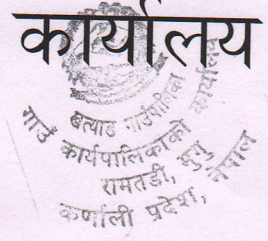 कार्यालय
खत्याड गाउँपालिका
गाउँ कार्यपालिकाको कार्यालय
रामतडी, मुगु
कर्णाली प्रदेश, नेपाल